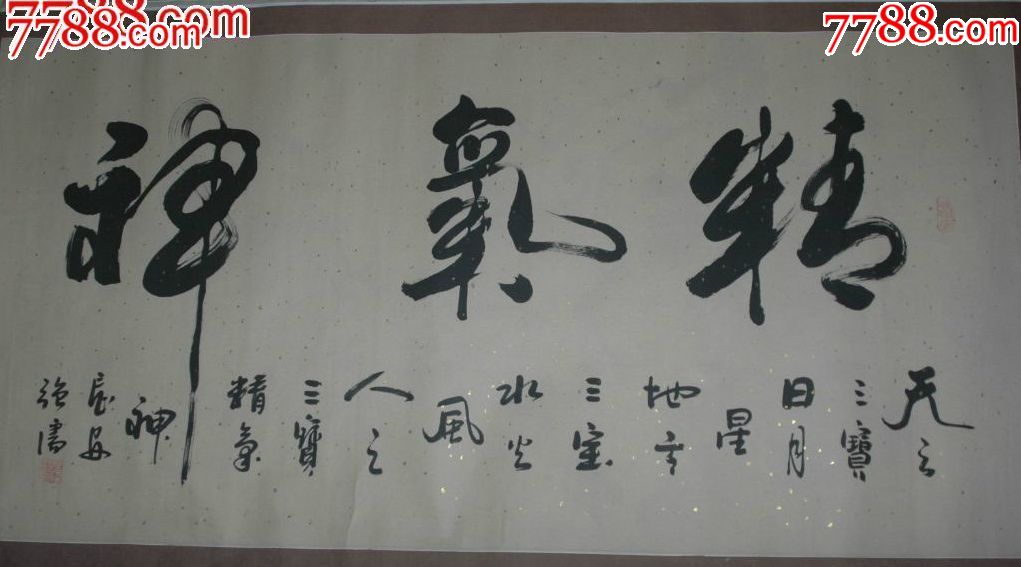 7788.com
7788.com
7788.com
精氣神
天之
三寶
日月
星
地之
三寶
水火
風
人之
三寶
精氣
神